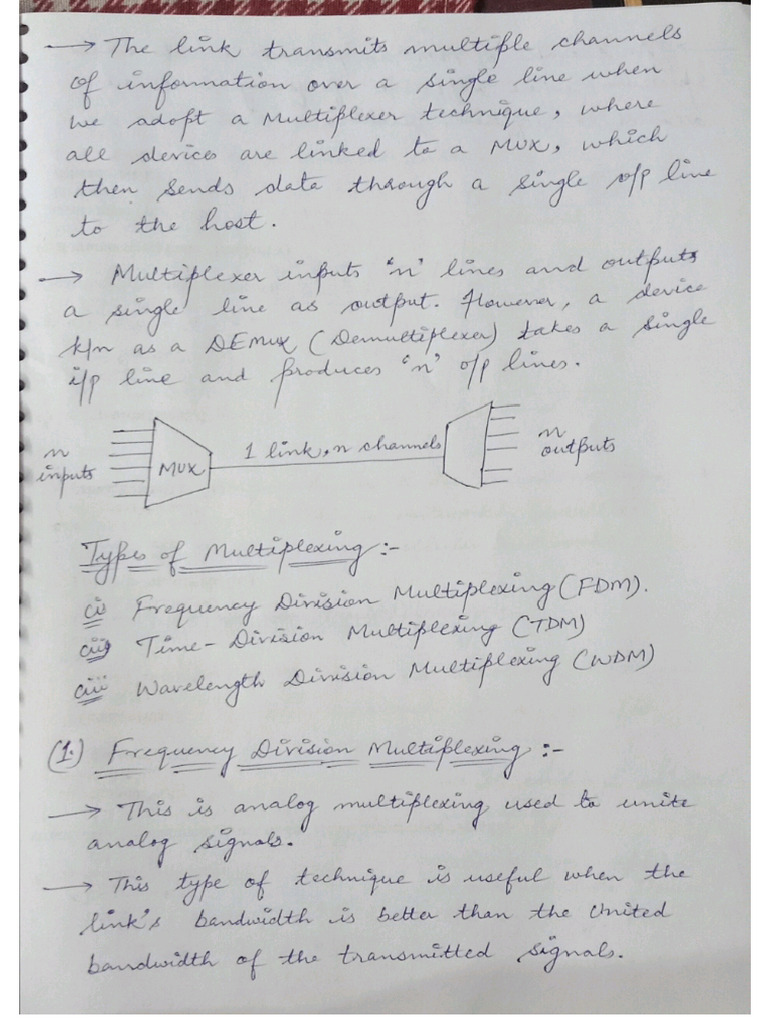 → The link transmits multiple channels
of information over a single line when
we adopt a Multiplexer technique, where
all devices are linked to a MUX, which
then sends data through a single o/p line
to the host.
→ Multiplexer inputs 'n' lines and outputs
a single line as output. However, a device
k/n as a DEMUX (Demultiplexer) takes a single
i/p line and produces 'n' o/p lines.
n inputs
MUX
1 link, n channels
n outputs
Types of Multiplexing :-
(i) Frequency Division Multiplexing (FDM).
(ii) Time-Division Multiplexing (TDM)
(iii) Wavelength Division Multiplexing (WDM)
(1.) Frequency Division Multiplexing :-
→ This is analog multiplexing used to unite
analog signals.
→ This type of technique is useful when the
link's bandwidth is better than the United
bandwidth of the transmitted signals.